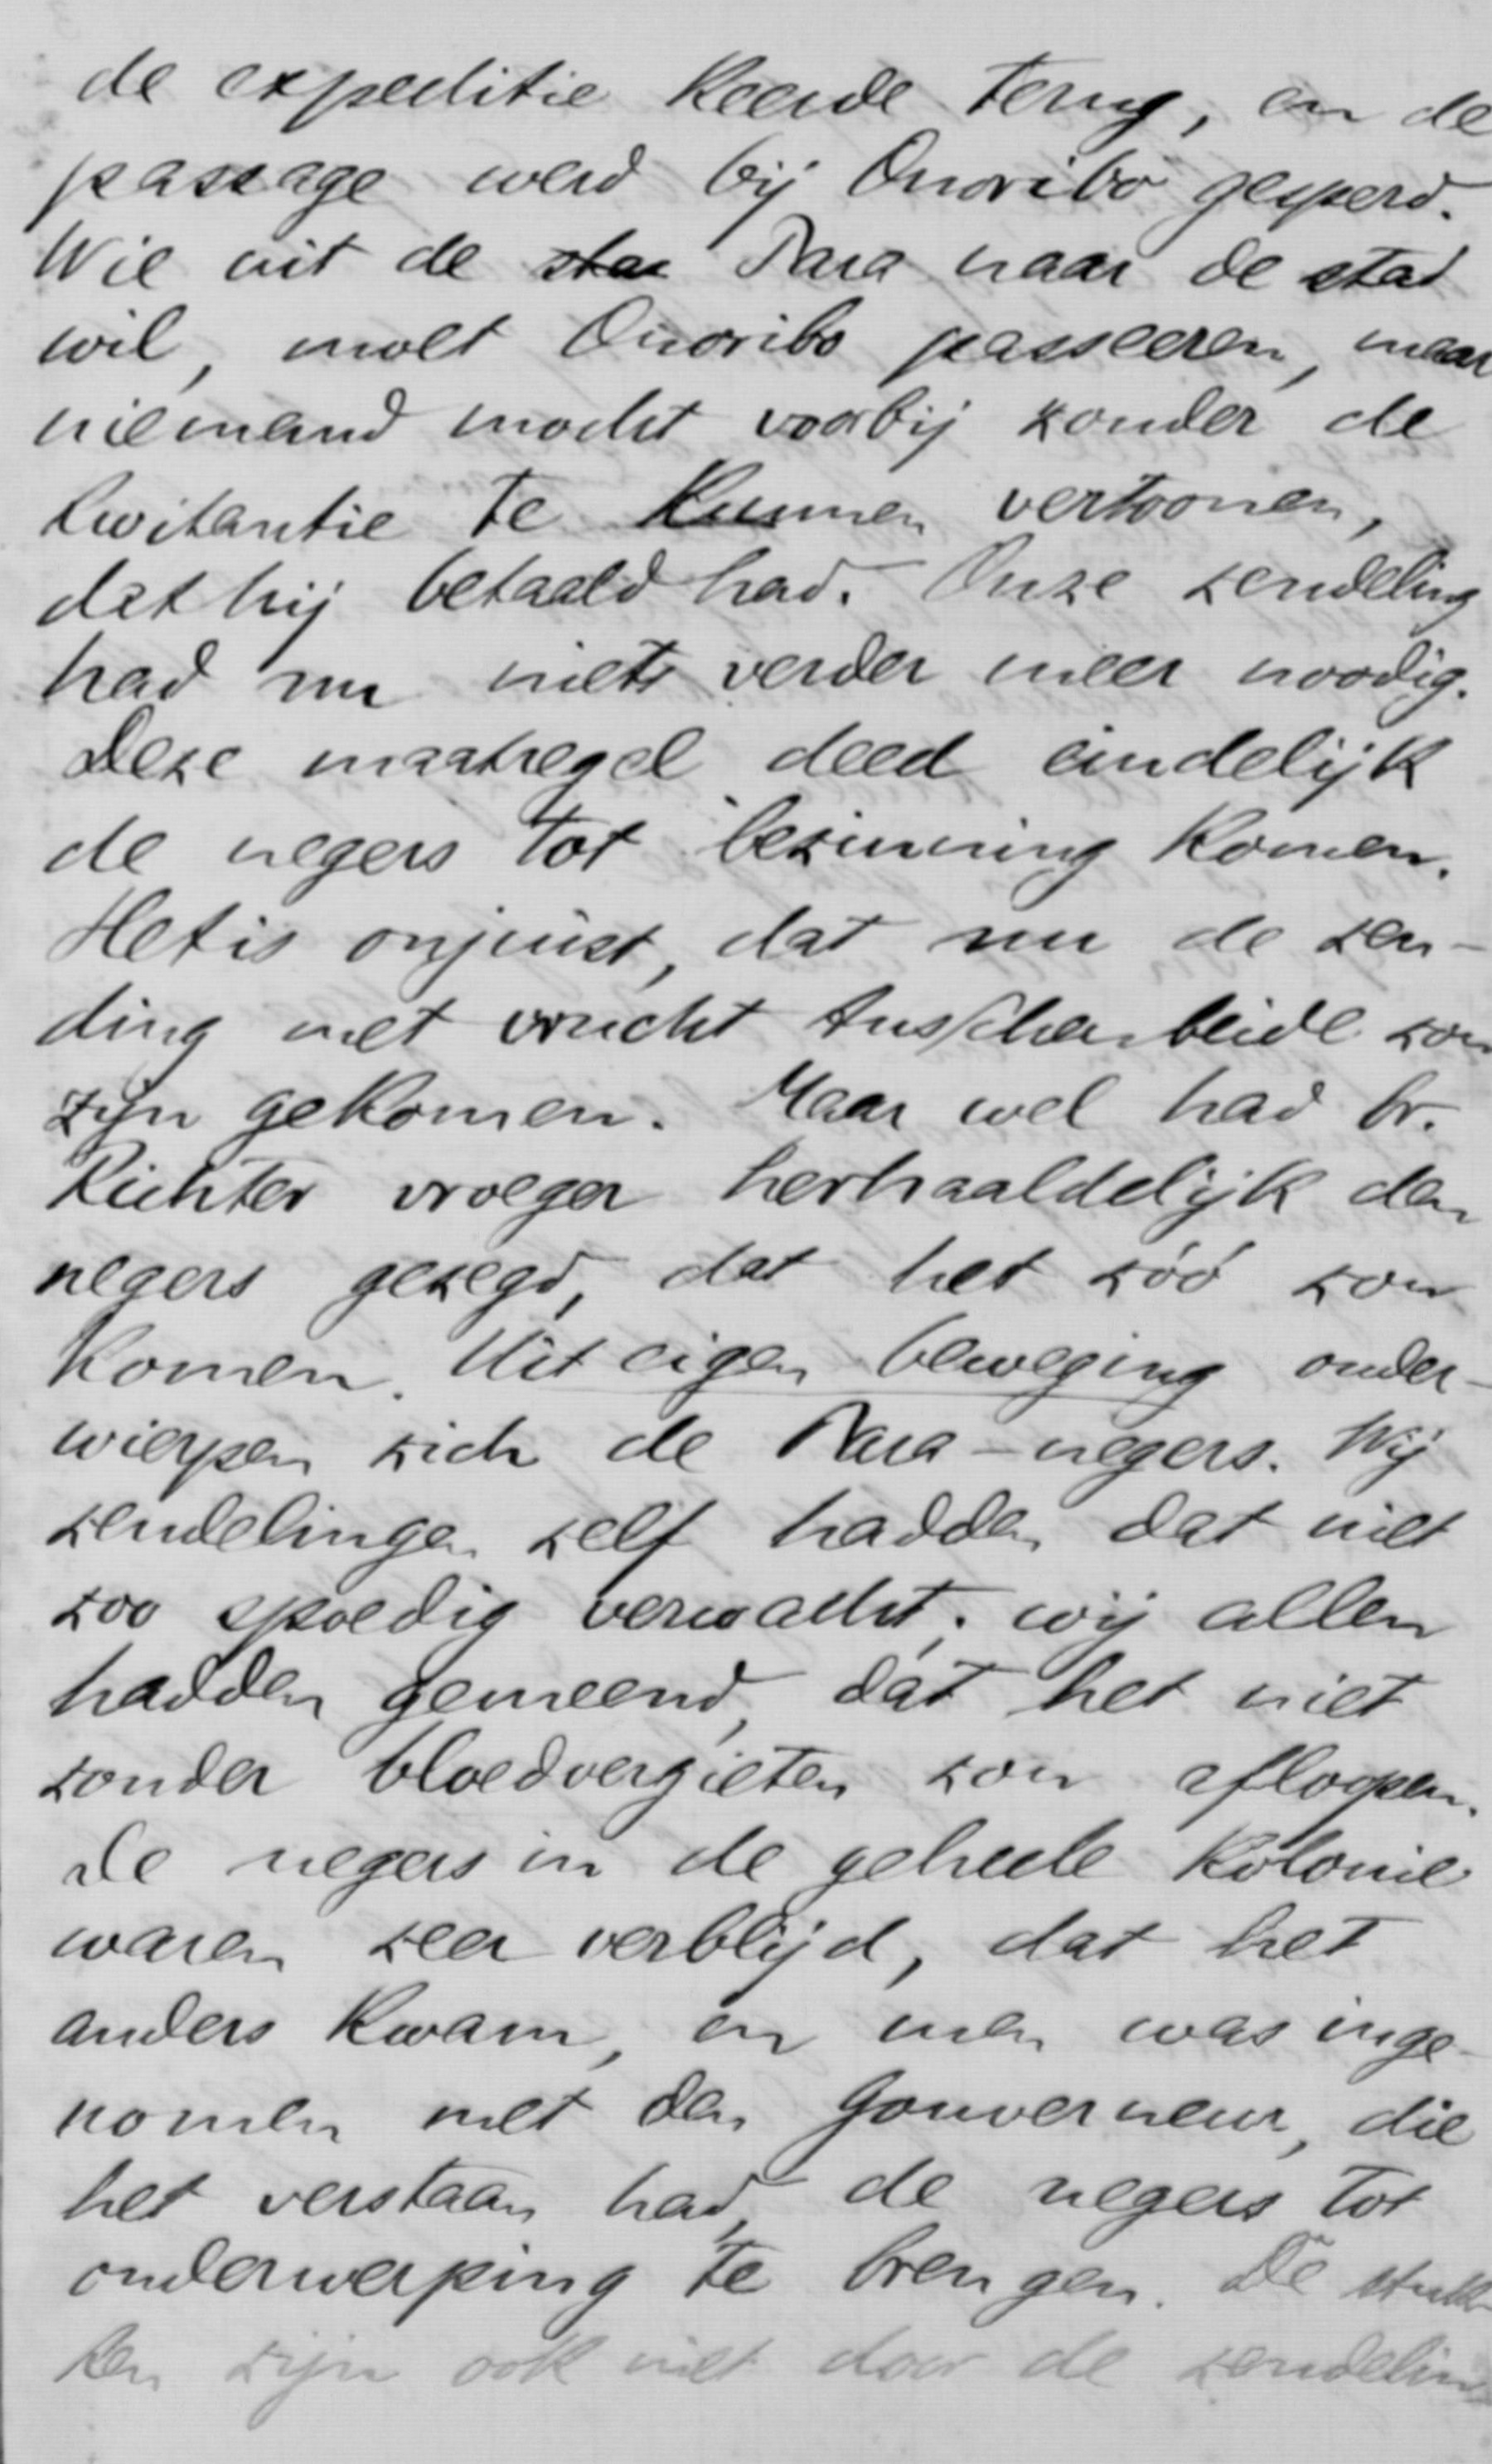 de expeditie keerde terug, en de
passage werd bij Onoribo gesperd.
Wie uit de sta Para naar de stad
wil, moet Onoribo passeeren, maar
niemand mocht voorbij zonder de
kwitantie te kunnen vertoonen,
dat hij betaald had. Onze zendeling
had nu niets verder meer noodig.
Deze maatregel deed eindelijk
de negers tot bezinning komen.
Het is onjuist, dat nu de zen-
ding met vrucht tusschenbeide zou
zijn gekomen. Maar wel had br.
Richter vroeger herhaaldelijk den
negers gezegd, dat het zóó zou
komen. Uit eigen beweging onder-
wierpen zich de Para-negers. Wij
zendelingen zelf hadden dat niet
zoo spoedig verwacht; wij allen
hadden gemeend, dat het niet
zonder bloedvergieten zou afloopen.
De negers in de geheele kolonie
waren zeer verblijd, dat het
anders kwam, en men was inge-
nomen met den Gouverneur, die
het verstaan had, de negers tot
onderwerping te brengen. De stuk-
ken zijn ook niet door de zendelin-